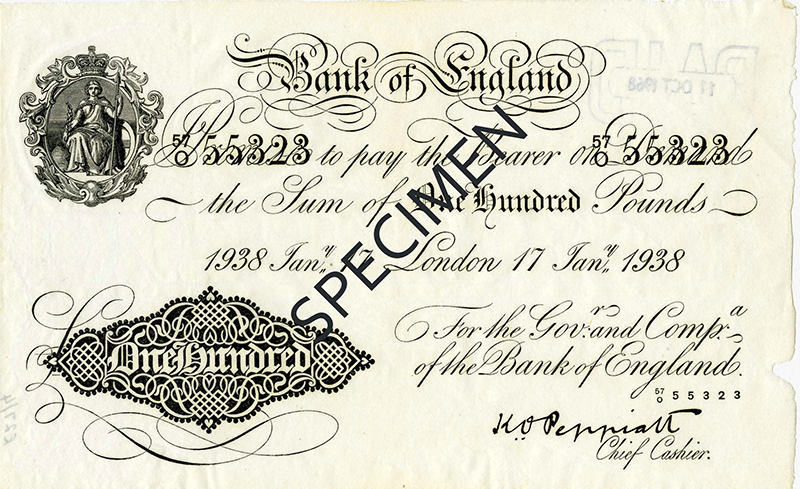 Bank of England
PAID
11 OCT 1968
57/0 55323 57/0 55323
I Promise to pay the Bearer on Demand
the Sum of One Hundred Pounds
1938 Jany. 17 London 17 Jany. 1938
SPECIMEN
One Hundred
For the Govr. and Compa.
of the Bank of England.
57/0 55323
K O Peppiatt
Chief Cashier.